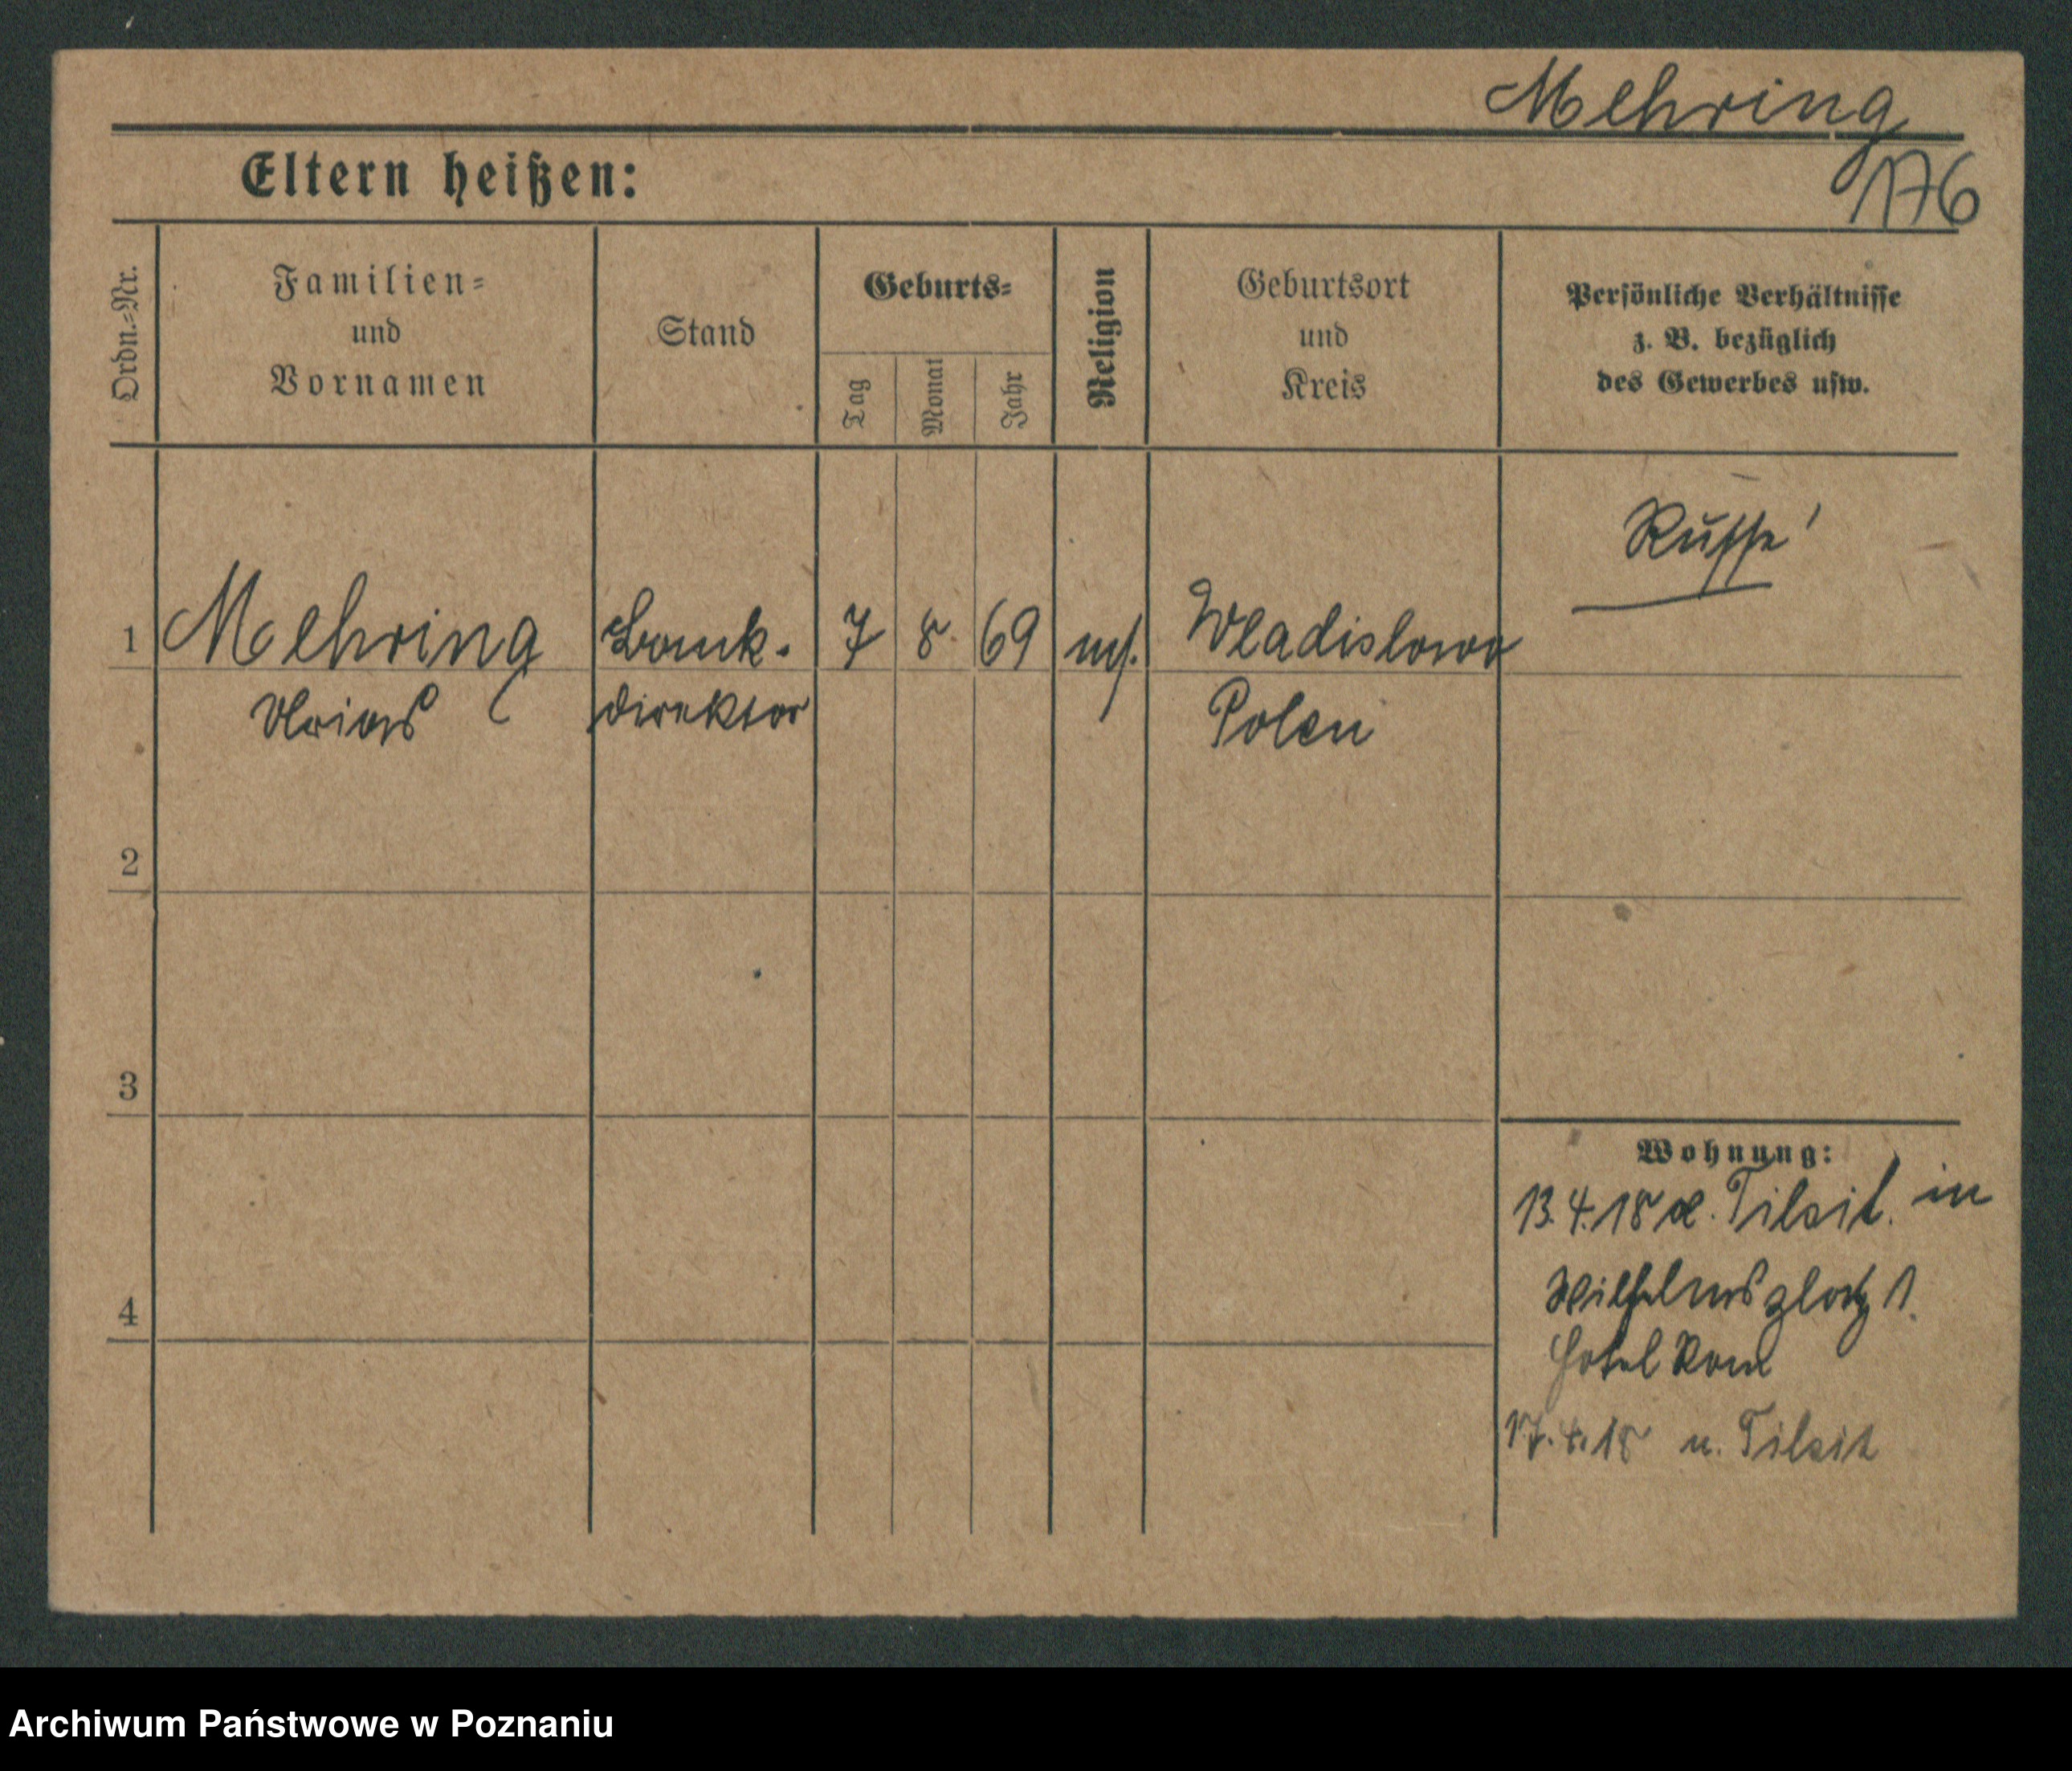 Mehring
176
Eltern heißen:
Ordn.=Nr.
Familien=
und
Vornamen
Stand
Geburts=
Tag
Monat
Jahr
Religion
Geburtsort
und
Kreis
Persönliche Verhältnisse
z. B. bezüglich
des Gewerbes usw.
Russe
1 Mehring Bank- 7 8. 69 Wladislowo
direktor Polen
2
3
4
Wohnung:
13.4.18 Tilsit. in
Wilhelmsplatz 1.
Hotel Rom
17.4.18 n. Tilsit
Archiwum Państwowe w Poznaniu